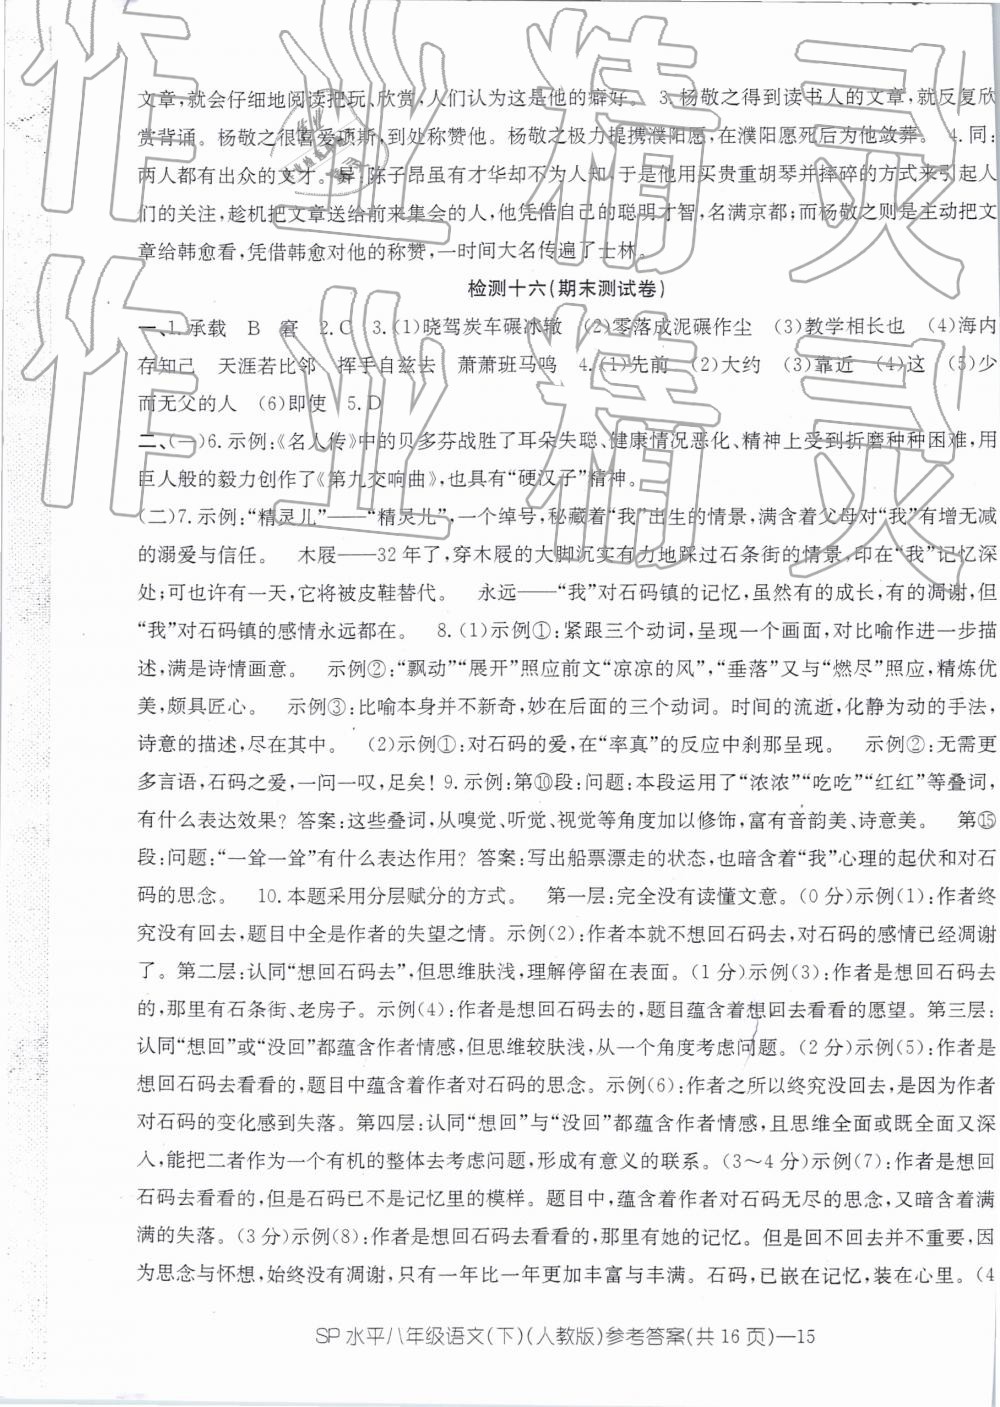 文章,就会仔细地阅读把玩、欣赏,人们认为这是他的癖好。 3.杨敬之得到读书人的文章,就反复欣
赏背诵。杨敬之很喜爱项斯,到处称赞他。杨敬之极力提携濮阳愿,在濮阳愿死后为他敛葬。 4.同:
两人都有出众的文才。异:陈子昂虽有才华却不为人知,于是他用买贵重胡琴并摔碎的方式来引起人
们的关注,趁机把文章送给前来集会的人,他凭借自己的聪明才智,名满京都;而杨敬之则是主动把文
章给韩愈看,凭借韩愈对他的称赞,一时间大名传遍了士林。
检测十六(期末测试卷)
一、1.承载 B 窘 2.C 3.(1)晓驾炭车碾冰辙 (2)零落成泥碾作尘 (3)教学相长也 (4)海内
存知己 天涯若比邻 挥手自兹去 萧萧班马鸣 4.(1)先前 (2)大约 (3)靠近 (4)这 (5)少
而无父的人 (6)即使 5.D
二、(一)6.示例:《名人传》中的贝多芬战胜了耳朵失聪、健康情况恶化、精神上受到折磨种种困难,用
巨人般的毅力创作了《第九交响曲》,也具有“硬汉子”精神。
(二)7.示例:“精灵儿”——“精灵儿”,一个绰号,秘藏着“我”出生的情景,满含着父母对“我”有增无减
的溺爱与信任。 木屐——32年了,穿木屐的大脚沉实有力地踩过石条街的情景,印在“我”记忆深
处;可也许有一天,它将被皮鞋替代。 永远——“我”对石码镇的记忆,虽然有的成长,有的凋谢,但
“我”对石码镇的感情永远都在。 8.(1)示例①:紧跟三个动词,呈现一个画面,对比喻作进一步描
述,满是诗情画意。 示例②:“飘动”“展开”照应前文“凉凉的风”,“垂落”又与“燃尽”照应,精炼优
美,颇具匠心。 示例③:比喻本身并不新奇,妙在后面的三个动词。时间的流逝,化静为动的手法,
诗意的描述,尽在其中。 (2)示例①:对石码的爱,在“率真”的反应中刹那呈现。 示例②:无需更
多言语,石码之爱,一问一叹,足矣! 9.示例:第⑩段:问题:本段运用了“浓浓”“吃吃”“红红”等叠词,
有什么表达效果? 答案:这些叠词,从嗅觉、听觉、视觉等角度加以修饰,富有音韵美、诗意美。 第⑮
段:问题:“一耸一耸”有什么表达作用? 答案:写出船票漂走的状态,也暗含着“我”心理的起伏和对石
码的思念。 10.本题采用分层赋分的方式。 第一层:完全没有读懂文意。(0分)示例(1):作者终
究没有回去,题目中全是作者的失望之情。示例(2):作者本就不想回石码去,对石码的感情已经凋谢
了。第二层:认同“想回石码去”,但思维肤浅,理解停留在表面。(1分)示例(3):作者是想回石码去
的,那里有石条街、老房子。示例(4):作者是想回石码去的,题目蕴含着想回去看看的愿望。第三层:
认同“想回”或“没回”都蕴含作者情感,但思维较肤浅,从一个角度考虑问题。(2分)示例(5):作者是
想回石码去看看的,题目中蕴含着作者对石码的思念。示例(6):作者之所以终究没回去,是因为作者
对石码的变化感到失落。第四层:认同“想回”与“没回”都蕴含作者情感,且思维全面或既全面又深
入,能把二者作为一个有机的整体去考虑问题,形成有意义的联系。(3～4分)示例(7):作者是想回
石码去看看的,但是石码已不是记忆里的模样。题目中,蕴含着作者对石码无尽的思念,又暗含着满
满的失落。(3分)示例(8):作者是想回石码去看看的,那里有她的记忆。但是回不回去并不重要,因
为思念与怀想,始终没有凋谢,只有一年比一年更加丰富与丰满。石码,已嵌在记忆,装在心里。(4
SP水平八年级语文(下)(人教版)参考答案(共16页)—15
作业精灵
作业精灵